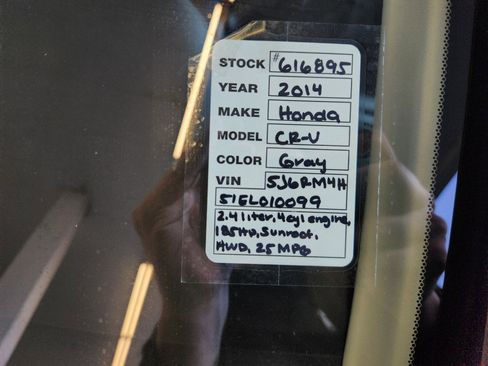 STOCK #616895
YEAR 2014
MAKE Honda
MODEL CR-V
COLOR Gray
VIN 5J6RM4H
51EL010099
2.4 liter, 4cyl engine,
185Hp, Sunroof,
AWD, 25 MPG